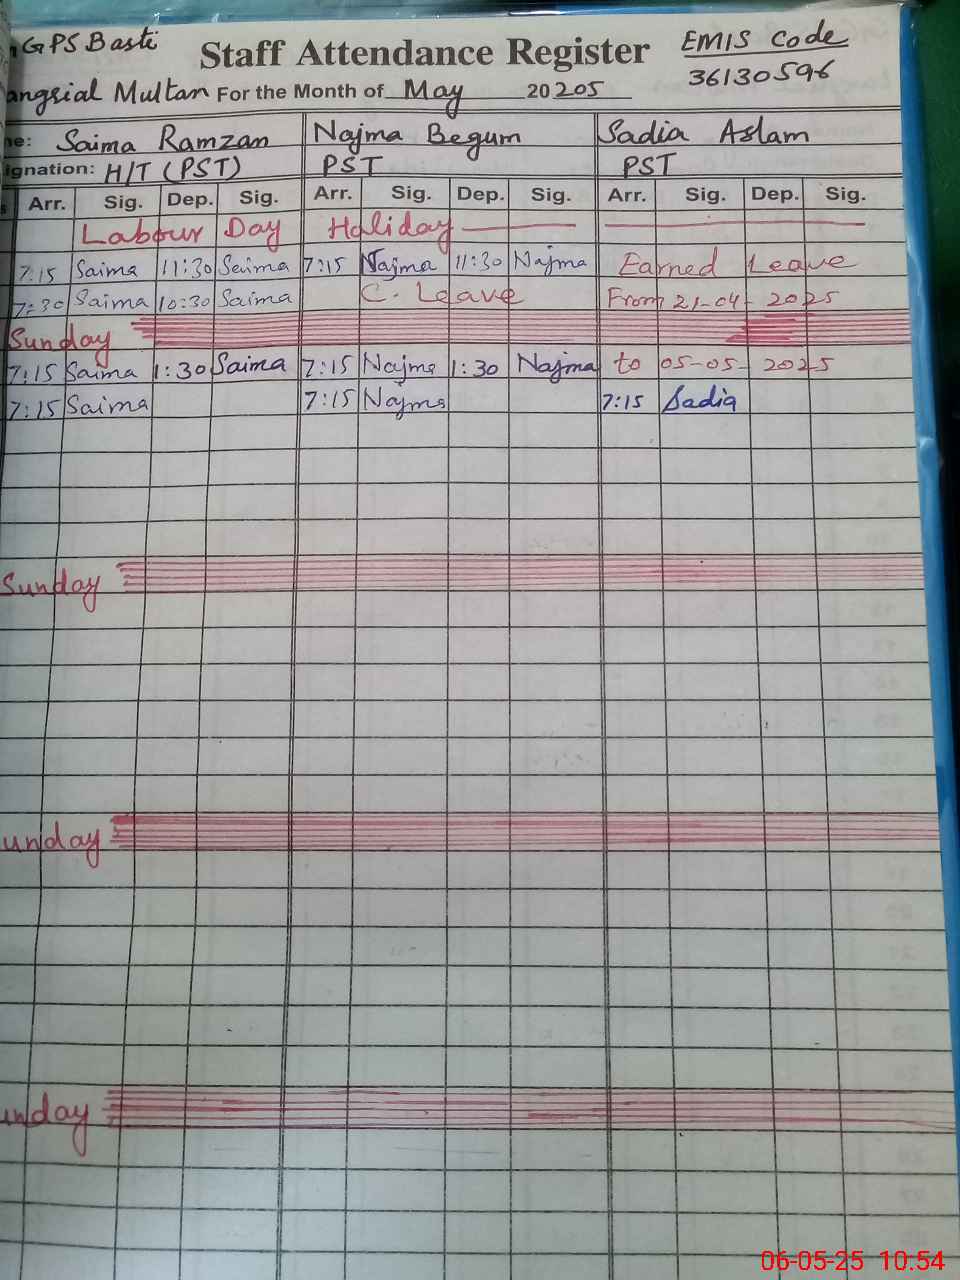 GPS Basti Staff Attendance Register EMIS Code
angsial Multan For the Month of May 20205 36130596
ne: Saima Ramzan Najma Begum Sadia Aslam
ignation: H/T (PST) PST PST
s Arr. Sig. Dep. Sig. Arr. Sig. Dep. Sig. Arr. Sig. Dep. Sig.
Labour Day Holiday
7:15 Saima 11:30 Saima 7:15 Najma 11:30 Najma Earned Leave
7:30 Saima 10:30 Saima C. Leave From 21-04-2025
Sunday
7:15 Saima 1:30 Saima 7:15 Najma 1:30 Najma to 05-05-2025
7:15 Saima 7:15 Najma 7:15 Sadia
Sunday
unday
unday
06-05-25 10:54